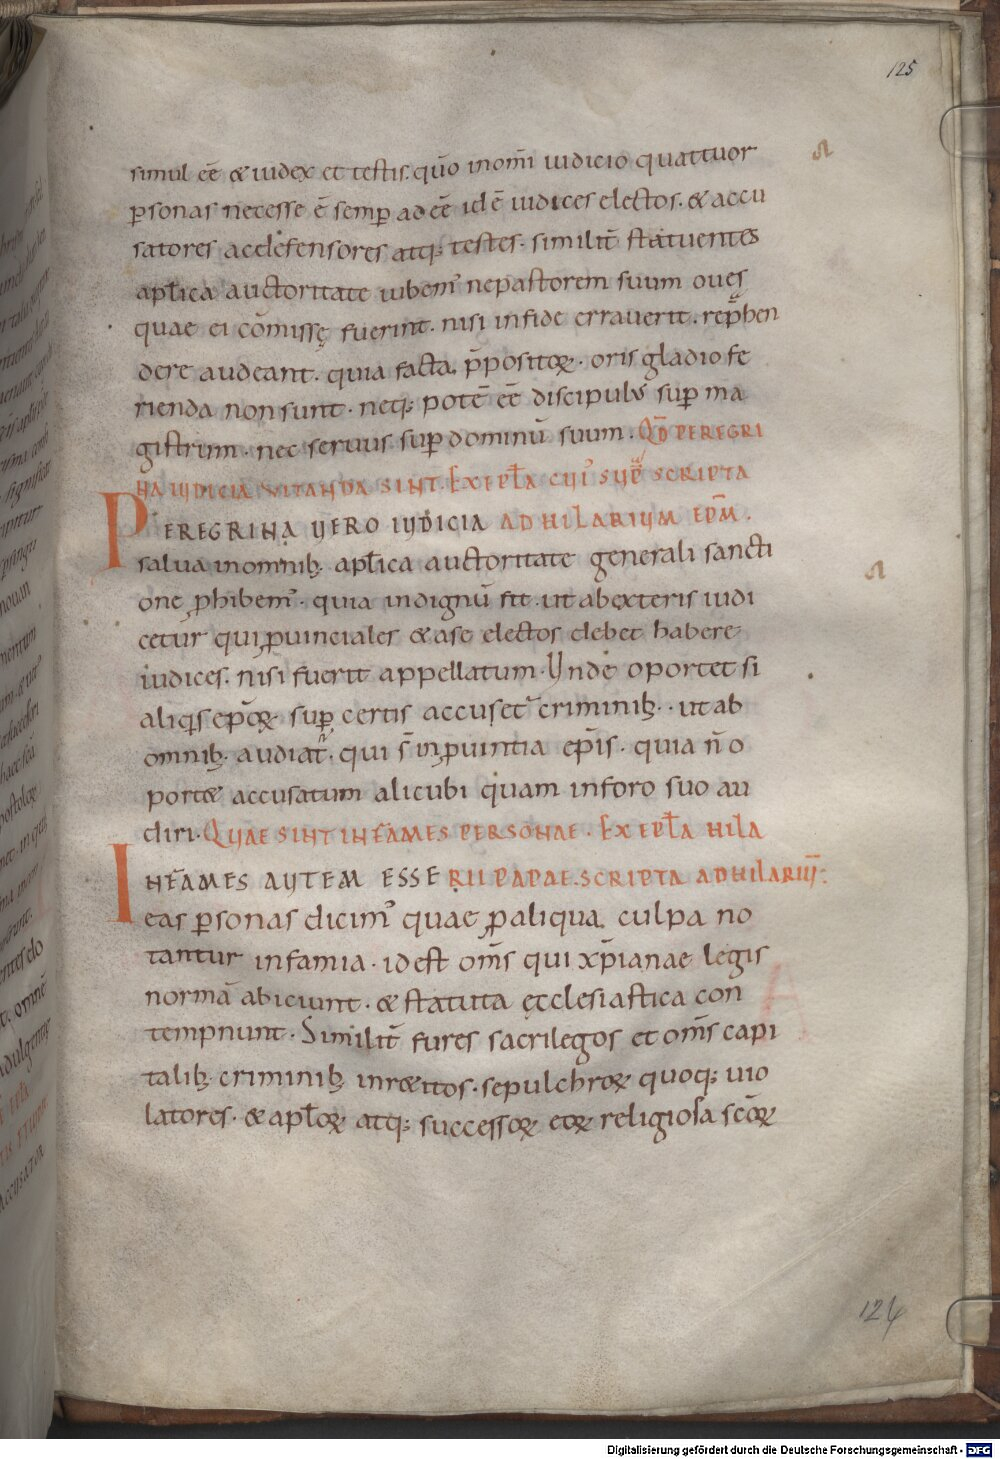 125
simul eē & iudex et testis. quō inom̄i iudicio quattuor
p̱sonas necesse ē semp̱ adeē idē iudices electos. & accu
satores acdefensores atq; testes. similit̄ statuentes
apłica auctoritate iubem᾽ nepastorem suum oues
quae ei cōmissę fuerint. nisi infide errauerit. rep̄hen
dere audeant. quia facta p̄positoꝝ. oris gladio fe
rienda non sunt. neq; potē eē discipulus sup̱ ma
gistrum. nec seruus sup̱ dominū suum. QD̄ PEREGRI
NA IUDICIA VITANDA SINT. EX EPŁA CUI᾽ SUP̄ SCRIPTA
PEREGRINA UERO IUDICIA AD HILARIUM EPM̄.
salua inomnib; apłica auctoritate generali sancti
one ꝓhibem᾽. quia indignū fit. ut abexteris iudi
cetur qui ꝓuinciales & ase electos debet habere
iudices. nisi fuerit appellatum. Unde oportet si
aliq̄s ep̄coꝝ sup̱ certis accuset᾽ criminib;. ut ab
omnib; audiat᾽. qui s̄ in ꝓuintia ep̄is. quia n̄ o
port& accusatum alicubi quam inforo suo au
diri. QUAE SINT INFAMES PERSONAE. EX EPŁA HILA
INFAMES AUTEM ESSE RII PAPAE. SCRIPTA AD HILARIŪ:
eas p̱sonas dicim᾽ quae ꝓ aliqua culpa no
tantur infamia. idest om̄s qui xp̄ianae legis
normā abiciunt. & statuta ęcclesiastica con
tempnunt. Similit̄ fures sacrilegos et om̄s capi
talib; criminib; inr&itos. sepulchroꝝ quoq; uio
latores. & apłoꝝ atq; successoꝝ eoꝝ religiosa sc̄oꝝ
124
Digitalisierung gefördert durch die Deutsche Forschungsgemeinschaft - DFG